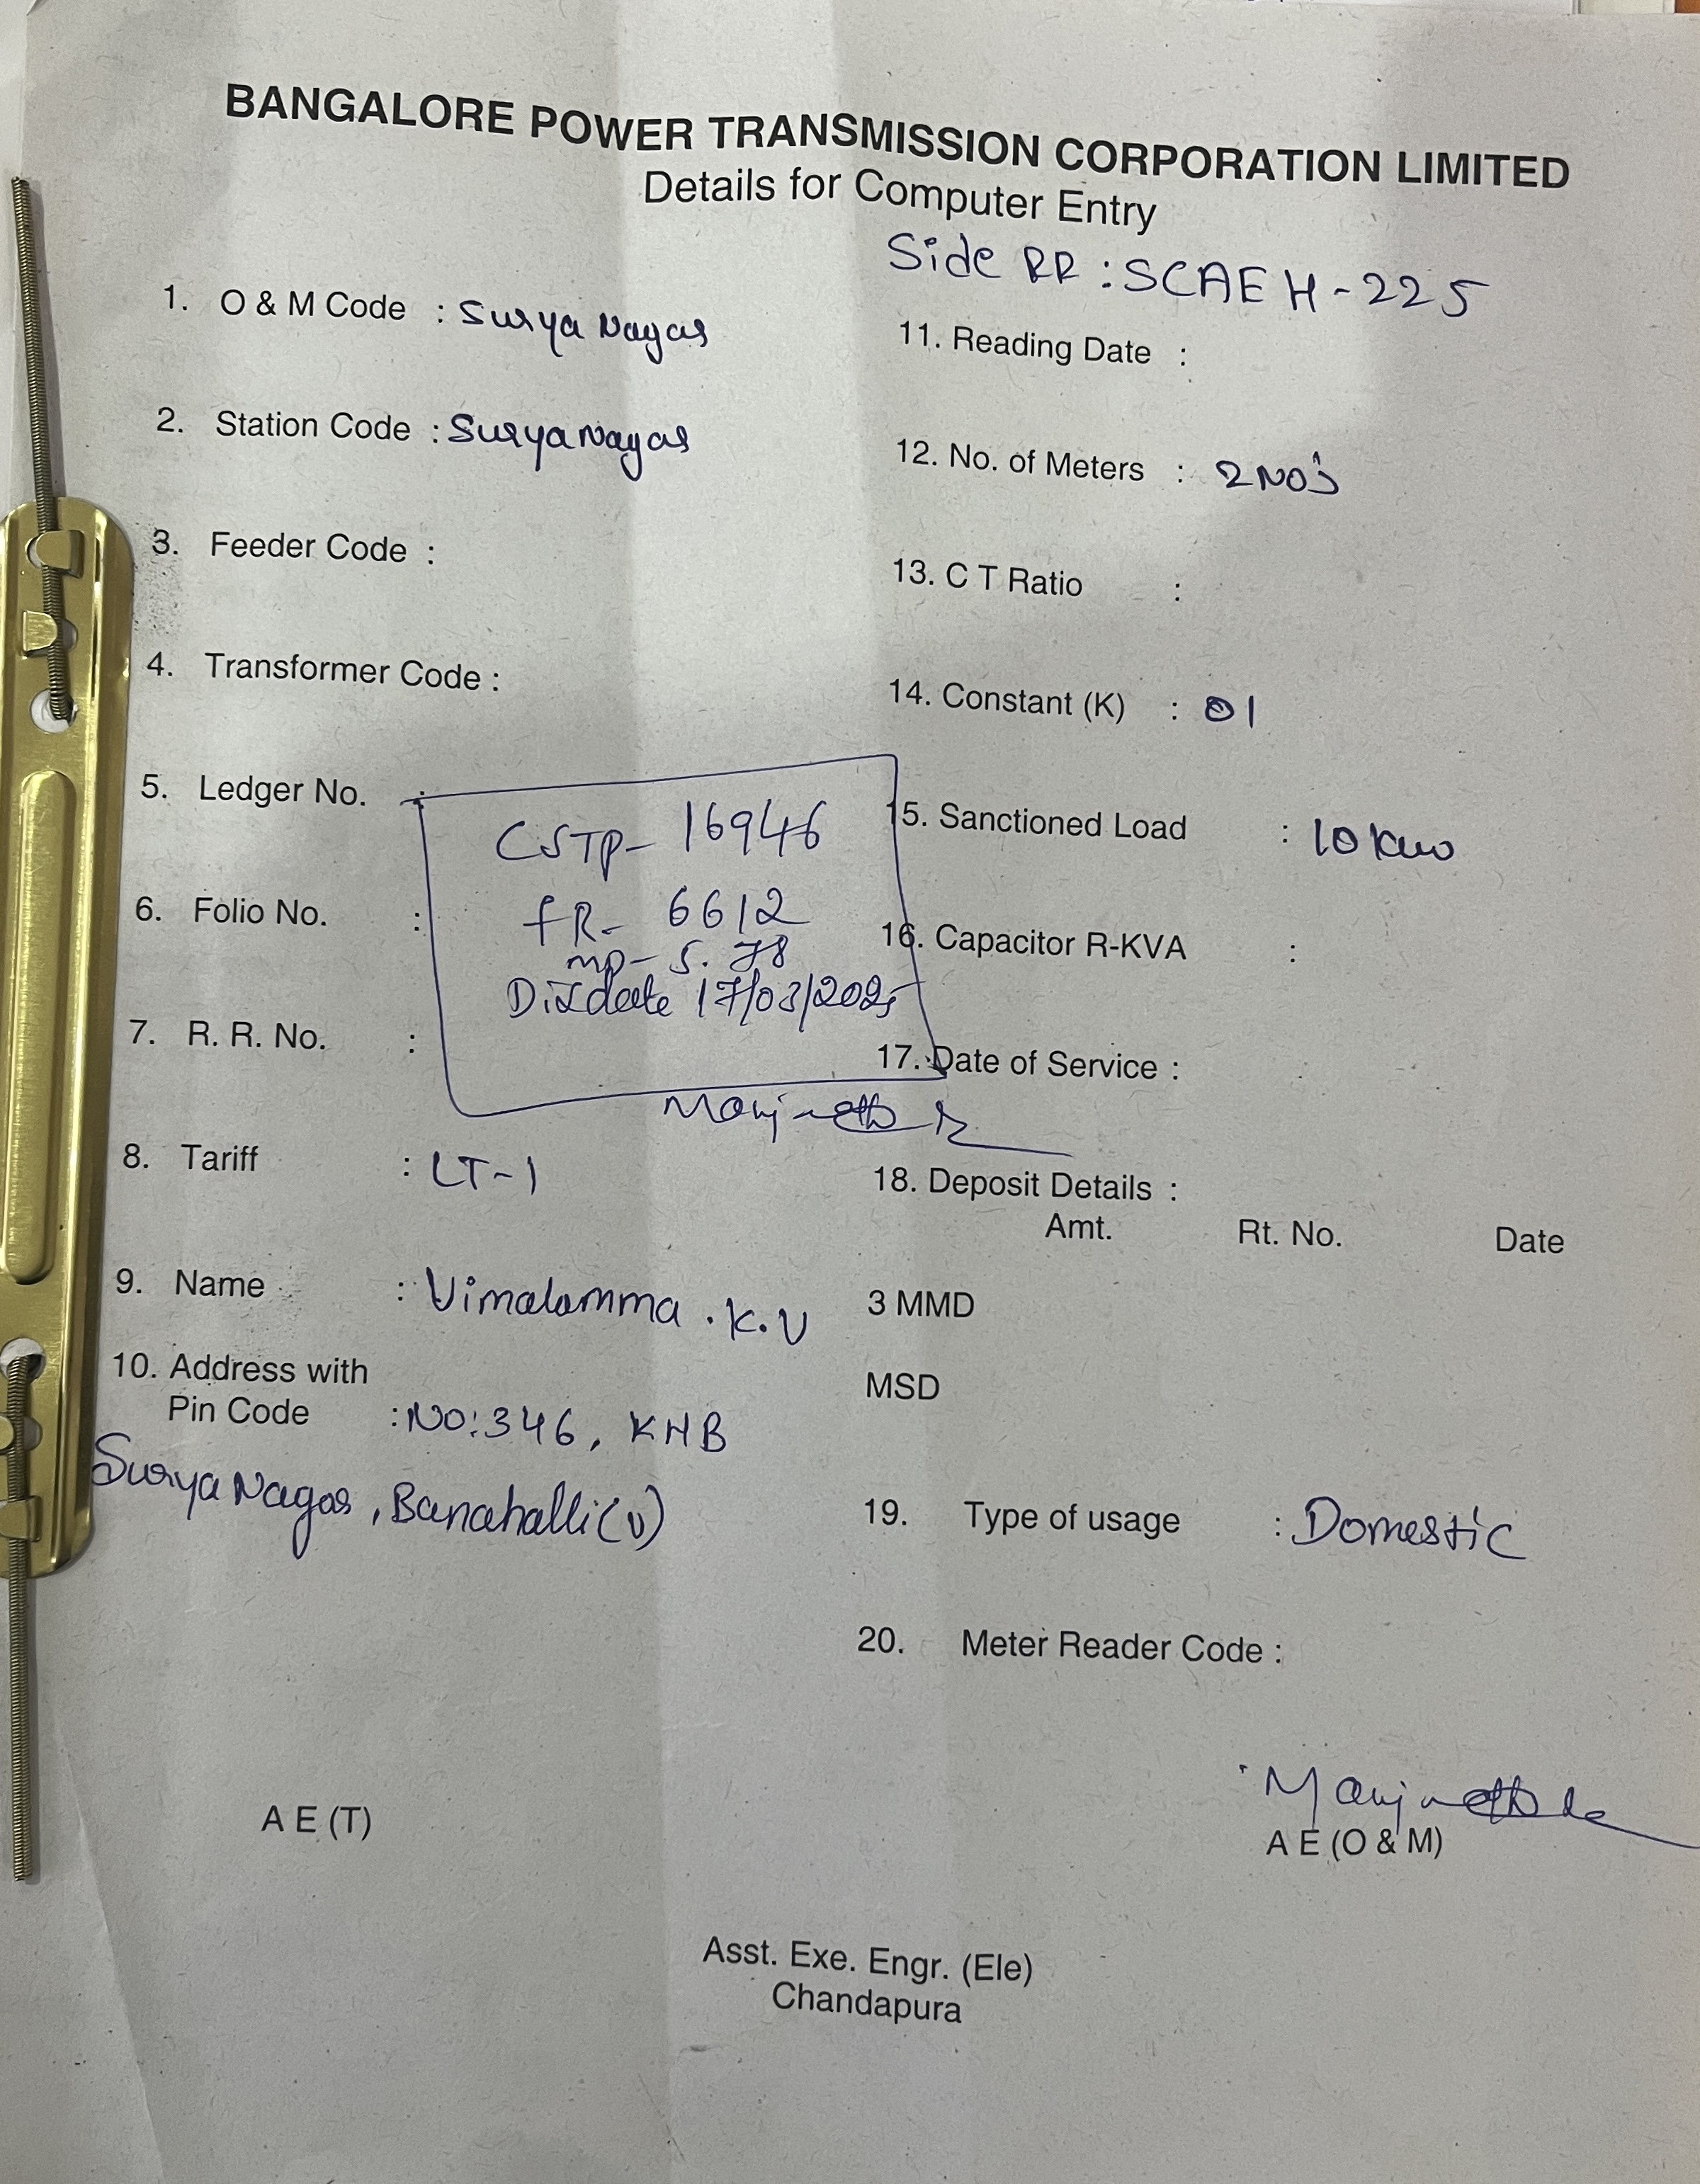 BANGALORE POWER TRANSMISSION CORPORATION LIMITED
Details for Computer Entry
Side RR : SCAEH-225
1. O & M Code : Surya Nagar
2. Station Code : Surya Nagar
3. Feeder Code :
4. Transformer Code :
5. Ledger No. :
6. Folio No. :
7. R. R. No. :
CSTP- 16946
fR- 6612
mp- 5.78
date 17/03/2025
8. Tariff : LT-1
9. Name : Vimalamma . K.V
10. Address with
Pin Code : NO:346, KHB
Surya Nagar, Banahalli (V)
11. Reading Date :
12. No. of Meters : 2 NO's
13. C T Ratio :
14. Constant (K) : 01
15. Sanctioned Load : 10 kw
16. Capacitor R-KVA :
17. Date of Service :
18. Deposit Details :
Amt. Rt. No. Date
3 MMD
MSD
19. Type of usage : Domestic
20. Meter Reader Code :
A E (T)
A E (O & M)
Asst. Exe. Engr. (Ele)
Chandapura